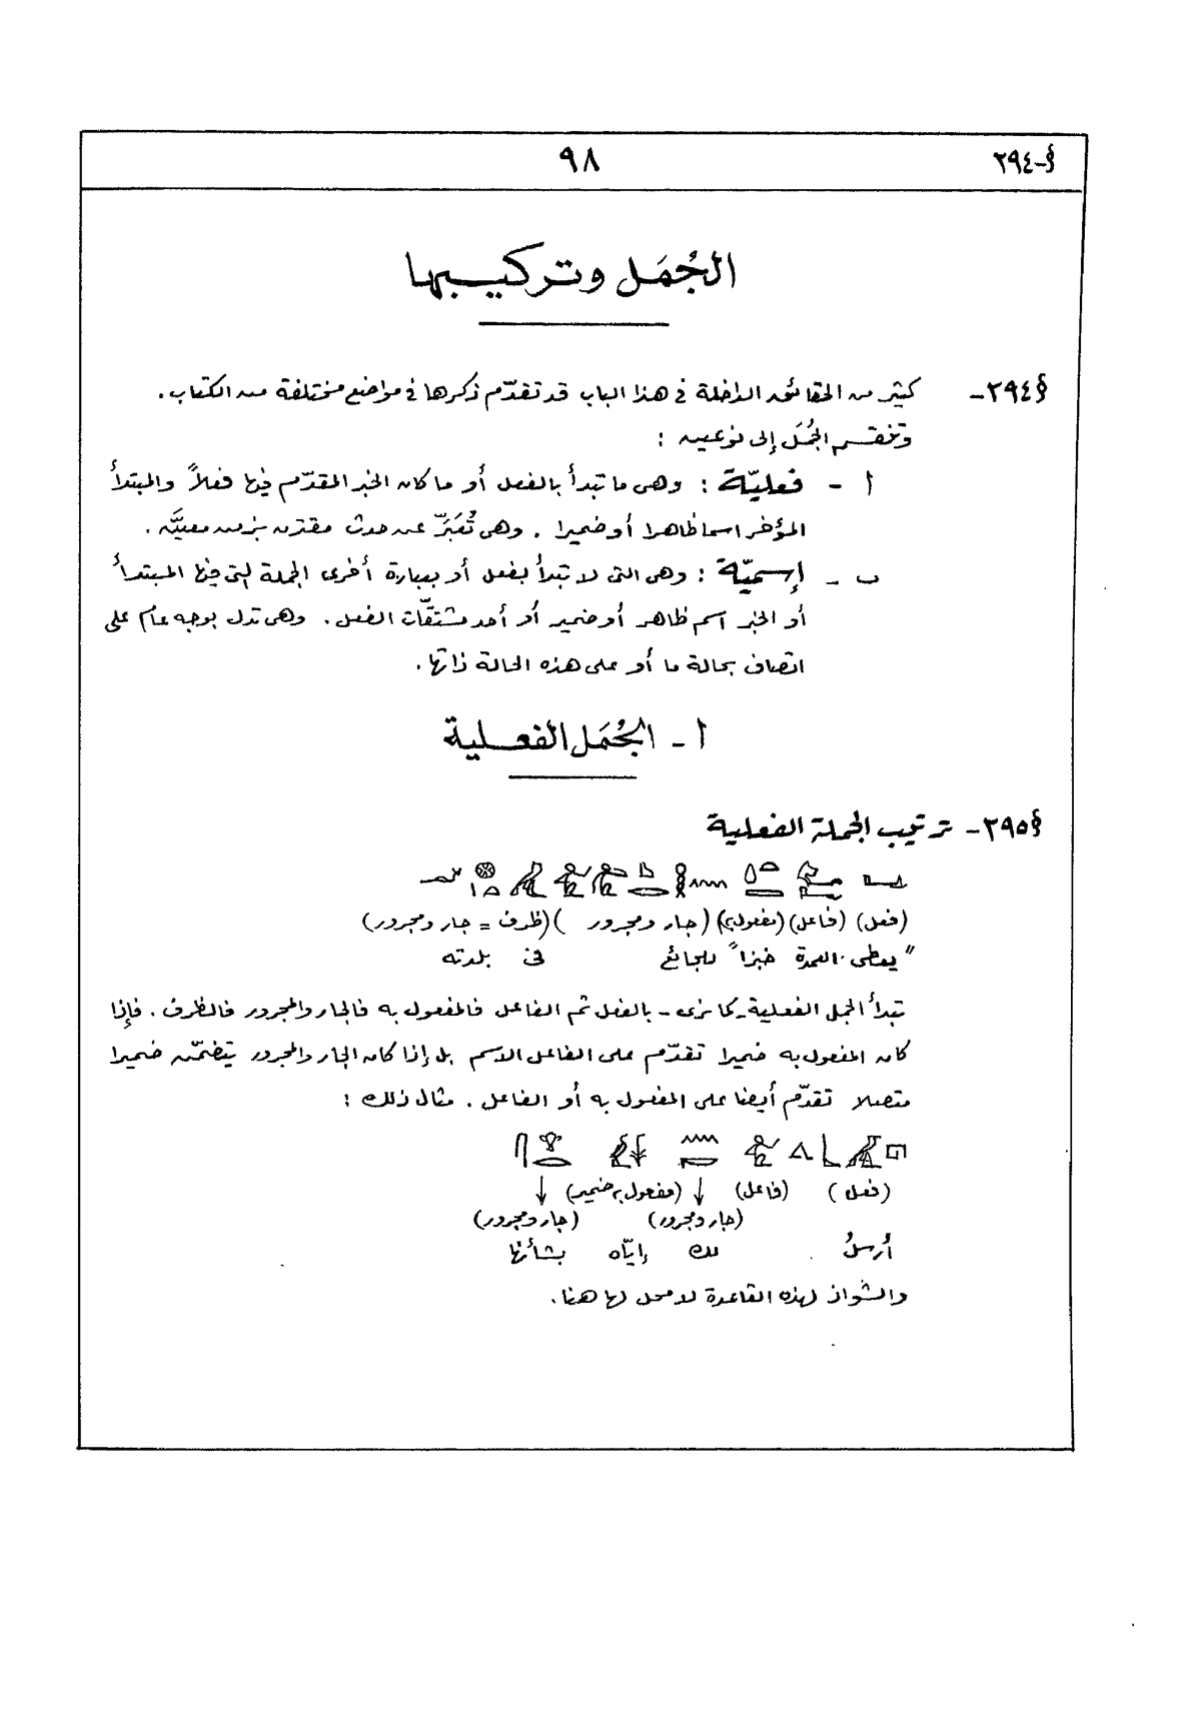 §-٢٩٤
٩٨
الجُمَل وتركيبها
§٢٩٤- كثير من الحقائق الداخلة في هذا الباب قد تقدّم ذكرها في مواضع مختلفة من الكتاب.
وتنقسم الجُمَل إلى نوعين :
أ - فعليّة : وهى ما تبدأ بالفعل أو ما كان الخبر المقدّم فيها فعلاً والمبتدأ
المؤخر اسما ظاهرا أو ضميرا . وهى تُعَبِّر عن حدث مقترن بزمن معيَّن .
ب - إسميّة : وهى التى لا تبدأ بفعل أو بعبارة أخرى الجملة التى فيها المبتدأ
أو الخبر اسم ظاهر أو ضمير أو أحد مشتقّات الفعل . وهى تدل بوجه عام على
اتصاف بحالة ما أو على هذه الحالة ذاتها .
أ - الجُمَل الفعلية
§٢٩٥- ترتيب الجملة الفعلية
(فعل) (فاعل) (مفعول به) (جار ومجرور ) (ظرف = جار ومجرور)
" يعطى العمدة خبزاً للجائع فى بلدته
تبدأ الجمل الفعلية - كما نرى - بالفعل ثم الفاعل فالمفعول به فالجار والمجرور فالظرف . فإذا
كان المفعول به ضميرا تقدّم على الفاعل الاسم بل إذا كان الجار والمجرور يتضمّن ضميرا
متصلا تقدّم أيضا على المفعول به أو الفاعل . مثال ذلك :
(فعل) (فاعل) ↓ (مفعول به ضمير) ↓
(جار ومجرور) (جار ومجرور)
أُرسلُ لك إيّاه بشأنها
والشواذ لهذه القاعدة لا محل لها هنا .